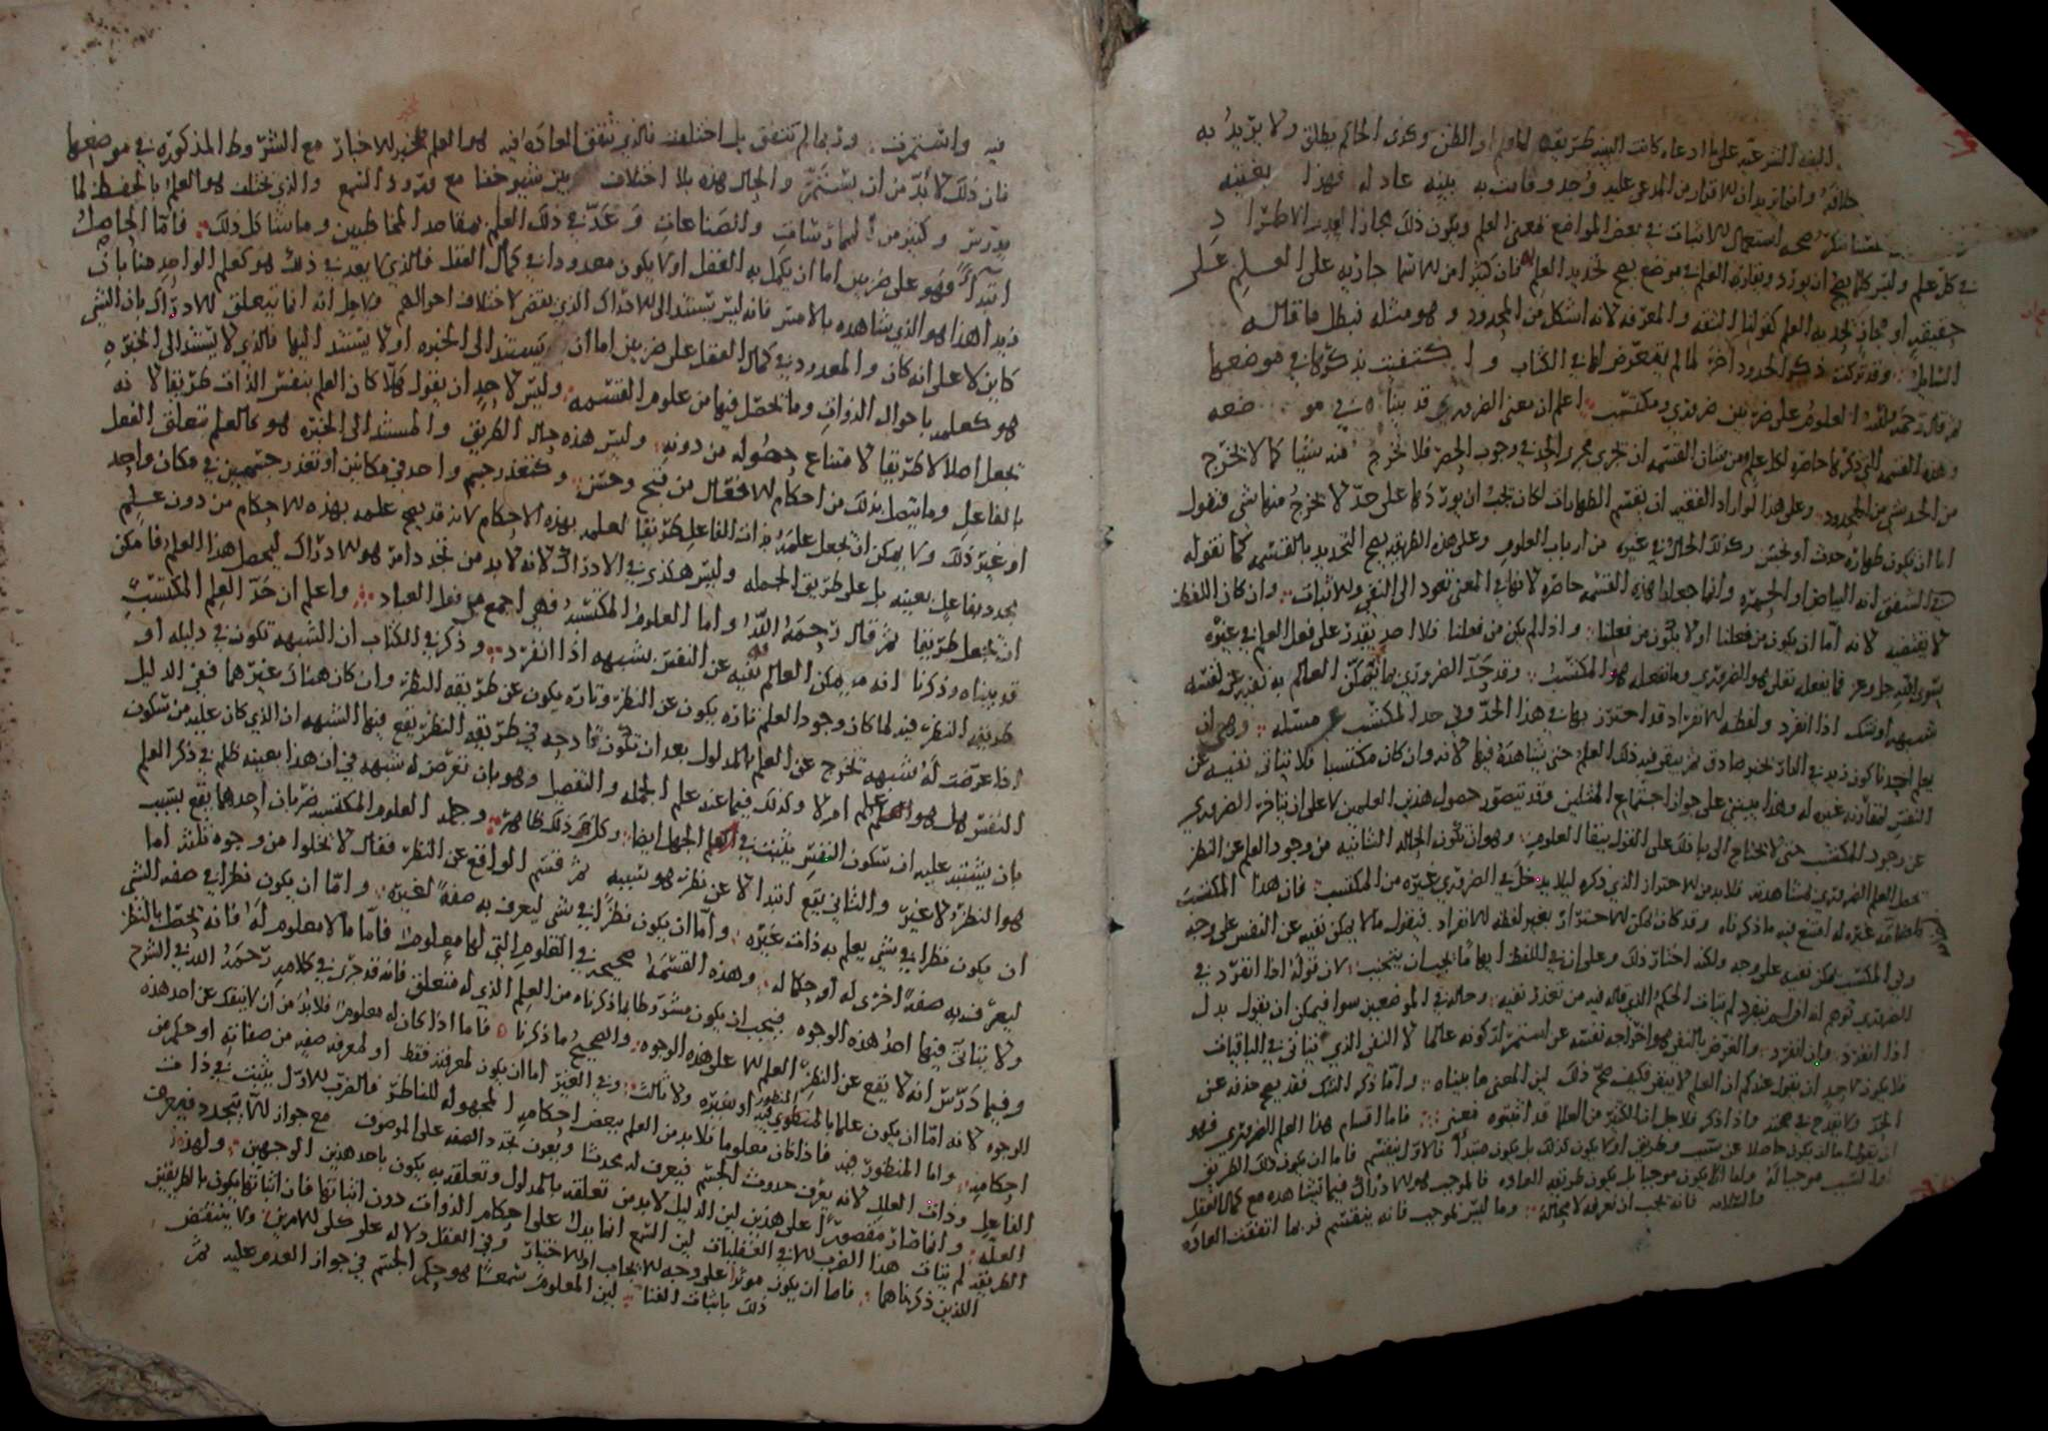 البينه الشرعيه على ما ادعاه كانت البينه طريقه للعلم او الظن وكذى الحاكم يطلق ولا يريد به
خلافه وانما يريد ان للاقرار من المدعى عليه وجد وقامت به بينه عادله فهذا بعينه
صحه استعمال للاثبات في بعض المواضع فمعنى العلم ويكون ذلك مجازا لعدم الاطراد
في كل علم وليس كلما يصح ان يورد ويفاد به العلم في موضع يصح تحديد العلم به فان كثيرا من للاشيا جاز به على العلم علم
حقيقي او مجاز لحد به العلم كقولنا الثقه والمعرفه لانه اشكل من المحدود وهو مثله فبطل ما قاله
السايل وقد تركت ذكر الحدود اخر لما لم يتعرض لها في الكتاب واكتفيت بذكرها في موضعها
ثم قال رحمه الله العلوم على ضربين ضروري ومكتسب اعلم ان معنى الضروري قد بيناه في موضعه
وهذه القسمه التي ذكرها حاصره لكل علم ومن شان القسمه ان تجري مجرى الحد في وجوب الحصر فلا تخرج منه شيئا كما لا يخرج
من الحد شي من المحدود وعلى هذا لو اراد الفقيه ان يقسم الطهارات لكان يجب ان يوردها على حد لا يخرج منها شي فنقول
اما ان يكون طهاره حدث او نجس وكذلك الحال في غيره من ارباب العلوم وعلى هذه الطريقه يصح التحديد بالقسمه كما نقوله
في الشفق انه البياض او الحمره وانما جعلنا هذه القسمه حاصره لانها في المعنى تعود الى النفي وللاثبات وان كان اللفظ
لا يقتضيه لانه اما ان يكون من فعلنا او لا يكون من فعلنا واذا لم يكن من فعلنا فلا احد يقدر على فعل العلم في غيره
سوى الله جل وعز فما يفعله تعالى هو الضروري وما نفعله هو المكتسب وقد حد الضروري بما لا يمكن العالم به نفيه عن نفسه
شبهه او شك اذا انفرد ولفظه للانفراد قد احترز بها في هذا الحد وفي حد المكتسب عن مسئله وهي ان
يعلم احدنا كون زيد في الدار بخبر صادق ثم يبقى فيه ذلك العلم حتى يشاهده فيها لانه وان كان مكتسبا فلا يتاتى نفيه عن
النفس لمقارنه غيره له وهذا يبتني على جواز اجتماع المثلين وقد يتصور حصول هذين العلمين لا على ان يتاخر الضروري
عن وجود المكتسب حتى لا يحتاج الى بنا ذلك على القول ببقا العلوم وهو ان تكون الحاله الثانيه من وجود العلم عن النظر
تحصل العلم الضروري لمشاهدته فلا بد من للاحتراز الذي ذكره ليلا يدخل في الضروري غيره من المكتسب فان هذا المكتسب
لمصاحبه غيره له امتنع فيه ما ذكرناه وقد كان يمكن للاحتراز بغير لفظه للانفراد فيقول ما لا يمكن نفيه عن النفس على وجه
وفي المكتسب يمكن نفيه على وجه ولكنه اختار ذلك وعلى ان في اللفظ ايهاما يجب ان يتجنب لان قوله اذا انفرد في
الضروري توهم انه اذا لم ينفرد لم يثبت الحكم الذي قاله فيه من تعذر نفيه وحاله في الموضعين سوا فيمكن ان يقول بدل
اذا انفرد وان انفرد والغرض بالنفي هو اخراجه نفسه عن استمرار كونه عالما لا النفي الذي يتاتى في الباقيات
فلا يكون لاحد ان يقول عندكم ان العلم لا يبقى فكيف صح ذلك لان المعنى ما بيناه واما ذكر الشك فقد يصح حذفه عن
الحد ولا يقدح في صحته واذا ذكر فلاجل ان الكثير من العلما قد اثبتوه معنى فاما اقسام هذا العلم الضروري فهو
ان نقول اما ان يكون حاصلا عن سبب وطريق او لا يكون كذلك بل يكون مبتدا فالاول ينقسم فاما ان يكون ذلك الطريق
او السبب موجبا له واما الا يكون موجبا بل يكون طريقه العاده فالموجب هو للادراك فيما نشاهده مع كمال العقل
والسلامه فانه يجب ان نعرفه لا محاله وما ليس بموجب فانه ينقسم فربما اتفقت العاده
فيه واستمرت وربما لم تتفق بل اختلفت فالذي تتفق العاده فيه هو العلم بمخبر للاخبار مع الشروط المذكوره في موضعها
فان ذلك لا بد من ان يستمر والحال هذه بلا اختلاف بين شيوخنا مع ورود السمع والذي يختلف هو العلم بالحفظ لما
يدرس وكثير من الممارسات والصناعات وعد في ذلك العلم بمقاصد المخاطبين وما شاكل ذلك فاما الحاصل
ابتدا فهو على ضربين اما ان يكمل به العقل او لا يكون معدودا في كمال العقل فالذي لا يعد في ذلك هو كعلم الواحد منا بان
زيدا هذا هو الذي شاهده بالامس فانه ليس يستند الى للادراك الذي يقضى لاختلاف احوالهم ولاجل انه انما يتعلق للادراك بان الشي
كاين لا على انه كان والمعدود في كمال العقل على ضربين اما ان يستند الى الخبره او لا يستند اليها فالذي لا يستند الى الخبره
هو كعلمه باحوال الذوات وما يحصل فيها من علوم القسمه وليس لاحد ان يقول هلا كان العلم بنفس الذات طريقا لانه
يجعل اصلا لا طريقا لامتناع حصوله من دونه وليس هذه حال الطريق والمستند الى الخبره هو كالعلم بتعلق الفعل
بالفاعل وما يتصل بذلك من احكام للافعال من قبح وحسن وكتعذر جسم واحد في مكانين او تعذر جسمين في مكان واحد
او غير ذلك ولا يمكن ان يجعل علمه بذات الفاعل طريقا لعلمه بهذه الاحكام لانه قد يصح علمه بهذه للاحكام من دون علم
يحدد بفاعل بعينه بل على طريق الجمله وليس هكذى في الادراك لانه لا بد من تجدد امر هو للادراك ليحصل هذا العلم فامكن
ان يجعل طريقا ثم قال رحمه الله واما العلوم المكتسبه فهي اجمع من فعل العباد واعلم ان حد العلم المكتسب
قد بيناه وذكرنا انه ما يمكن العالم به نفيه عن النفس بشبهه اذا انفرد وذكر في الكتاب ان الشبهه تكون في دليله او
طريقه النظر فيه لما كان وجود العلم تاره يكون عن النظر وتاره يكون عن طريقه النظر وان كان هناك غيرهما ففي الدليل
اذا عرضت له شبهه تخرج عن العلم بالمدلول بعد ان تكون قادحه في طريقه النظر يقع فيها الشبهه ان الذي كان عليه من سكون
النفس هل هو العلم ام لا وكذلك فيما عنه علم الجمله والتفصيل وهو بان تعرض له شبهه في ان هذا بعينه ظلم في ذكر العلم
بان يشتبه عليه ان سكون النفس يثبت في العلم الجهل ايضا وكل ذلك ظاهر وجمله العلوم المكتسبه ضربان احدهما يقع بسبب
هو النظر لا غير والثاني يقع ابتدا لا عن نظر هو سببه ثم قسم الواقع عن النظر فقال لا يخلوا من وجوه ثلثه اما
ان يكون نظرا في شي يعلم به ذات غيره واما ان يكون نظرا في شي ليعرف به صفه لغيره واما ان يكون نظرا في صفه الشي
ليعرف به صفه اخرى له او حكما له وهذه القسمه صحيحه في العلوم التي لها معلومات فاما ما لا معلوم له فانه يحصل بالنظر
ولا يتاتى فيها احد هذه الوجوه فيجب ان يكون مشروطا بما ذكرناه من العلم الذي له متعلق فانه قد جرى في كلامه رحمه الله في الشرح
وفيما درس انه لا يقع عن النظر العلم الا على هذه الوجوه والصحيح ما ذكرنا فاما اذا كان له معلوم فلا بد من ان لا ينفك عن احد هذه
الوجوه لانه اما ان يكون علما بالمنظور فيه او بغيره ولا ثالث وفي الغير اما ان يكون لمعرفته فقط او لمعرفه صفه من صفاته او حكم من
احكامه واما المنظور فيه فاذا كان معلوما فلا بد من العلم ببعض احكامه المجهوله للناظر فالضرب للاول يثبت في ذات
الفاعل وذات العله لانه يعرف حدوث الجسم فيعرف له محدثا ويعرف تجدد الصفه على الموصوف مع جواز الا يتجدد فيعرف
العله وانما صار مقصورا على هذين لان الدليل لا بد من تعلقه بالمدلول وتعلقه به يكون باحد هذين الوجهين ولهذه
الطريقه لم يثبت هذا الضرب للا في العقليات لان السمع انما يدل على احكام الذوات دون اثباتها فان اثباتها يكون بالطريقتين
اللذين ذكرناهما فاما ان يكون موثرا على وجه للايجاب او للاختيار وفي العقل دلاله على للامرين ولا ينتقض
ذلك باثبات الفنا لان المعلوم سمعا هو حكم الجسم في جواز العدم عليه ثم